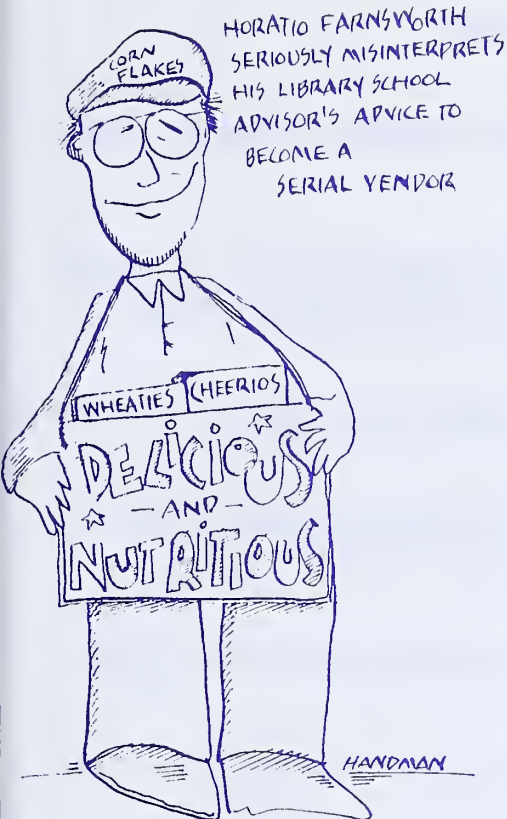 HORATIO FARNSWORTH
SERIOUSLY MISINTERPRETS
HIS LIBRARY SCHOOL
ADVISOR'S ADVICE TO
BECOME A
SERIAL VENDOR
CORN
FLAKES
WHEATIES CHEERIOS
DELICIOUS
-AND-
NUTRITIOUS
HANDMAN